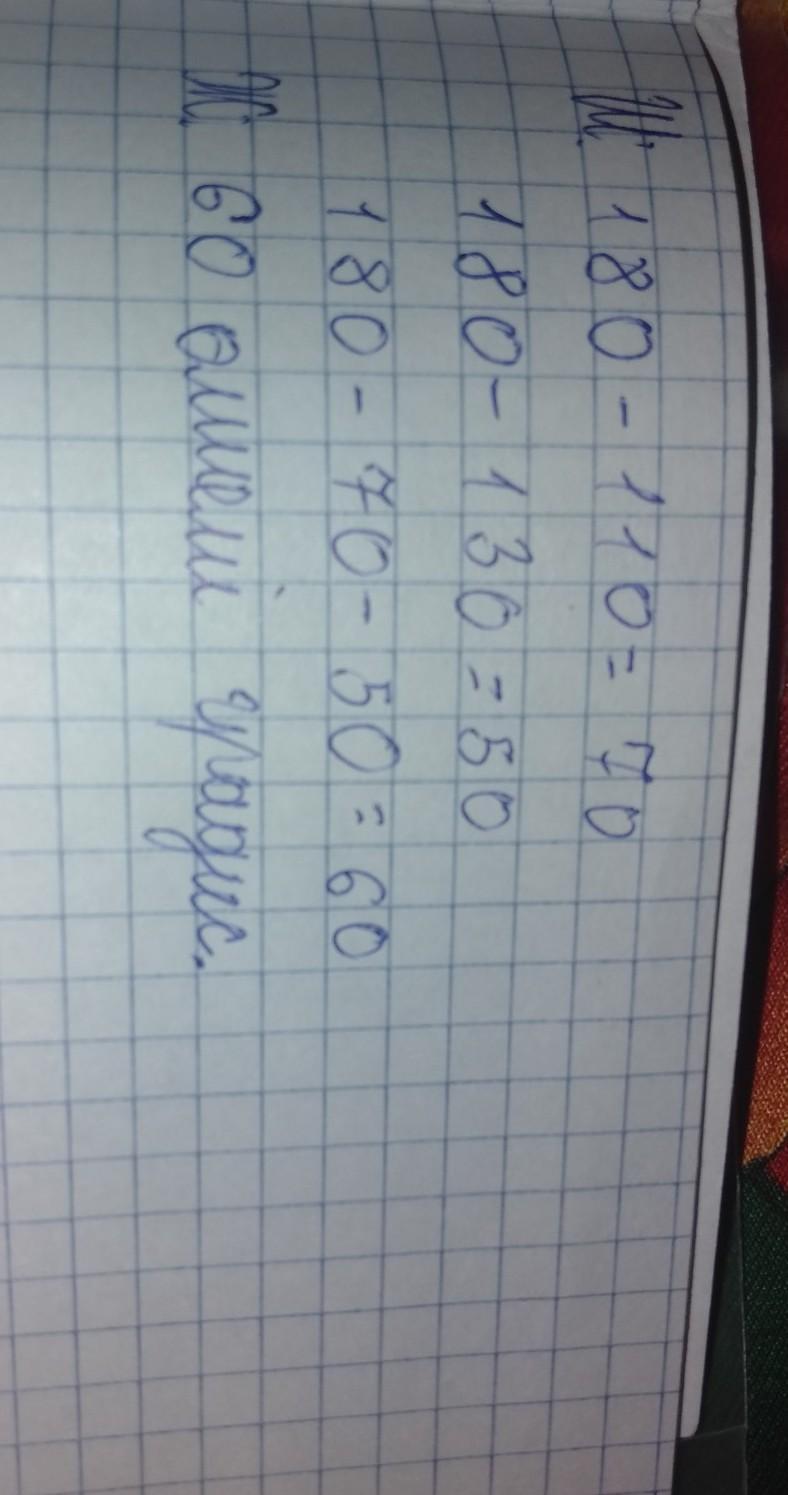 Ш. 180 - 110 = 70
180 - 130 = 50
180 - 70 - 50 = 60
Ж. 60 градус.